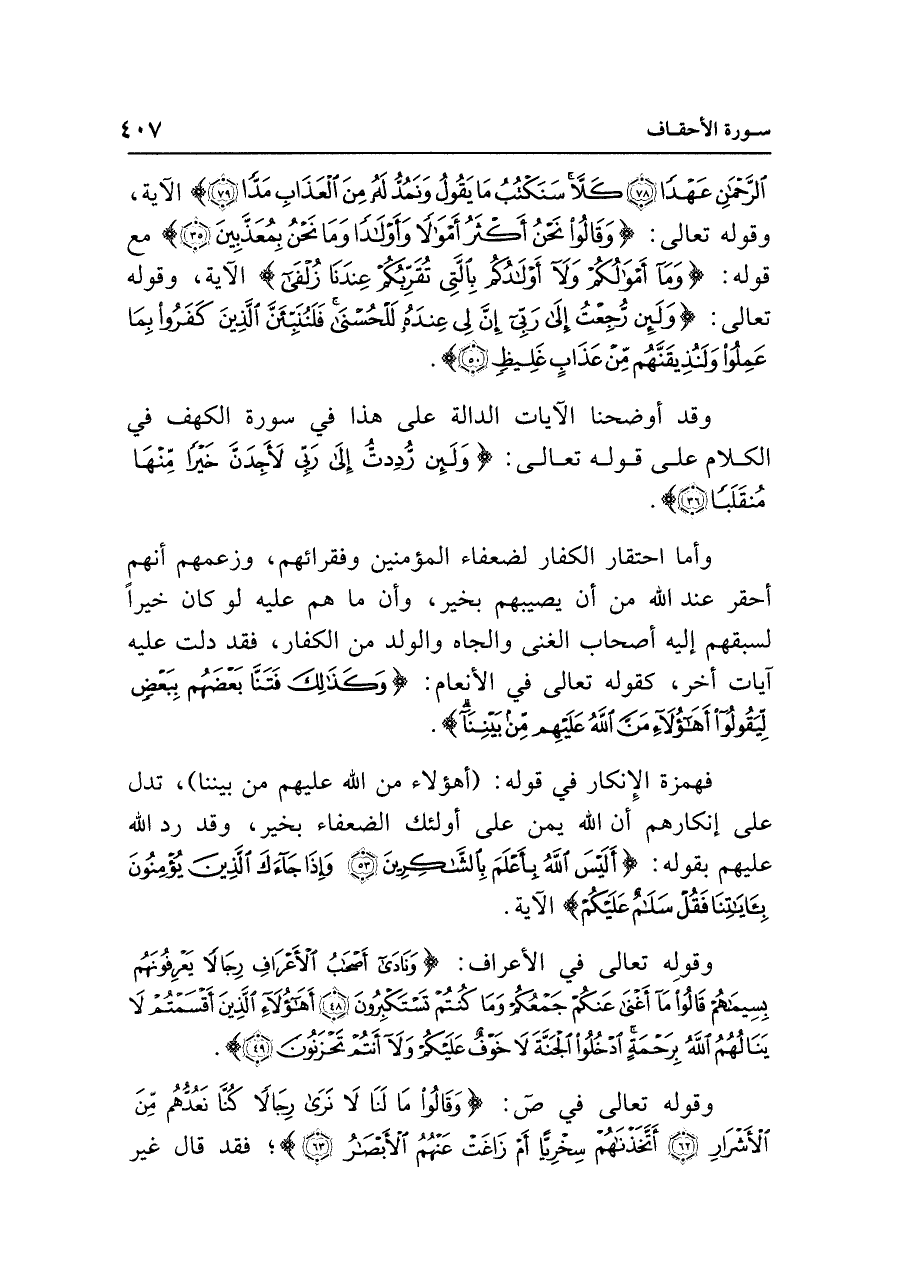 سورة الأحقاف ٤٠٧
الرَّحْمَٰنِ عَهْدًا ﴿٧٨﴾ كَلَّا ۚ سَنَكْتُبُ مَا يَقُولُ وَنَمُدُّ لَهُ مِنَ الْعَذَابِ مَدًّا ﴿٧٩﴾﴾ الآية،
وقوله تعالى: ﴿وَقَالُوا نَحْنُ أَكْثَرُ أَمْوَالًا وَأَوْلَادًا وَمَا نَحْنُ بِمُعَذَّبِينَ ﴿٣٥﴾﴾ مع
قوله: ﴿وَمَا أَمْوَالُكُمْ وَلَا أَوْلَادُكُم بِالَّتِي تُقَرِّبُكُمْ عِندَنَا زُلْفَىٰ﴾ الآية، وقوله
تعالى: ﴿وَلَئِن رُّجِعْتُ إِلَىٰ رَبِّي إِنَّ لِي عِندَهُ لَلْحُسْنَىٰ ۚ فَلَنُنَبِّئَنَّ الَّذِينَ كَفَرُوا بِمَا
عَمِلُوا وَلَنُذِيقَنَّهُم مِّنْ عَذَابٍ غَلِيظٍ ﴿٥٠﴾﴾.
وقد أوضحنا الآيات الدالة على هذا في سورة الكهف في
الكلام على قوله تعالى: ﴿وَلَئِن رُّدِدتُّ إِلَىٰ رَبِّي لَأَجِدَنَّ خَيْرًا مِّنْهَا
مُنقَلَبًا ﴿٣٦﴾﴾.
وأما احتقار الكفار لضعفاء المؤمنين وفقرائهم، وزعمهم أنهم
أحقر عند الله من أن يصيبهم بخير، وأن ما هم عليه لو كان خيراً
لسبقهم إليه أصحاب الغنى والجاه والولد من الكفار، فقد دلت عليه
آيات أخر، كقوله تعالى في الأنعام: ﴿وَكَذَٰلِكَ فَتَنَّا بَعْضَهُم بِبَعْضٍ
لِّيَقُولُوا أَهَٰؤُلَاءِ مَنَّ اللَّهُ عَلَيْهِم مِّن بَيْنِنَا ۗ﴾.
فهمزة الإِنكار في قوله: (أهؤلاء من الله عليهم من بيننا)، تدل
على إنكارهم أن الله يمن على أولئك الضعفاء بخير، وقد رد الله
عليهم بقوله: ﴿أَلَيْسَ اللَّهُ بِأَعْلَمَ بِالشَّاكِرِينَ ﴿٥٣﴾ وَإِذَا جَاءَكَ الَّذِينَ يُؤْمِنُونَ
بِآيَاتِنَا فَقُلْ سَلَامٌ عَلَيْكُمْ﴾ الآية.
وقوله تعالى في الأعراف: ﴿وَنَادَىٰ أَصْحَابُ الْأَعْرَافِ رِجَالًا يَعْرِفُونَهُم
بِسِيمَاهُمْ قَالُوا مَا أَغْنَىٰ عَنكُمْ جَمْعُكُمْ وَمَا كُنتُمْ تَسْتَكْبِرُونَ ﴿٤٨﴾ أَهَٰؤُلَاءِ الَّذِينَ أَقْسَمْتُمْ لَا
يَنَالُهُمُ اللَّهُ بِرَحْمَةٍ ۚ ادْخُلُوا الْجَنَّةَ لَا خَوْفٌ عَلَيْكُمْ وَلَا أَنتُمْ تَحْزَنُونَ ﴿٤٩﴾﴾.
وقوله تعالى في صَ: ﴿وَقَالُوا مَا لَنَا لَا نَرَىٰ رِجَالًا كُنَّا نَعُدُّهُم مِّنَ
الْأَشْرَارِ ﴿٦٢﴾ أَتَّخَذْنَاهُمْ سِخْرِيًّا أَمْ زَاغَتْ عَنْهُمُ الْأَبْصَارُ ﴿٦٣﴾﴾؛ فقد قال غير